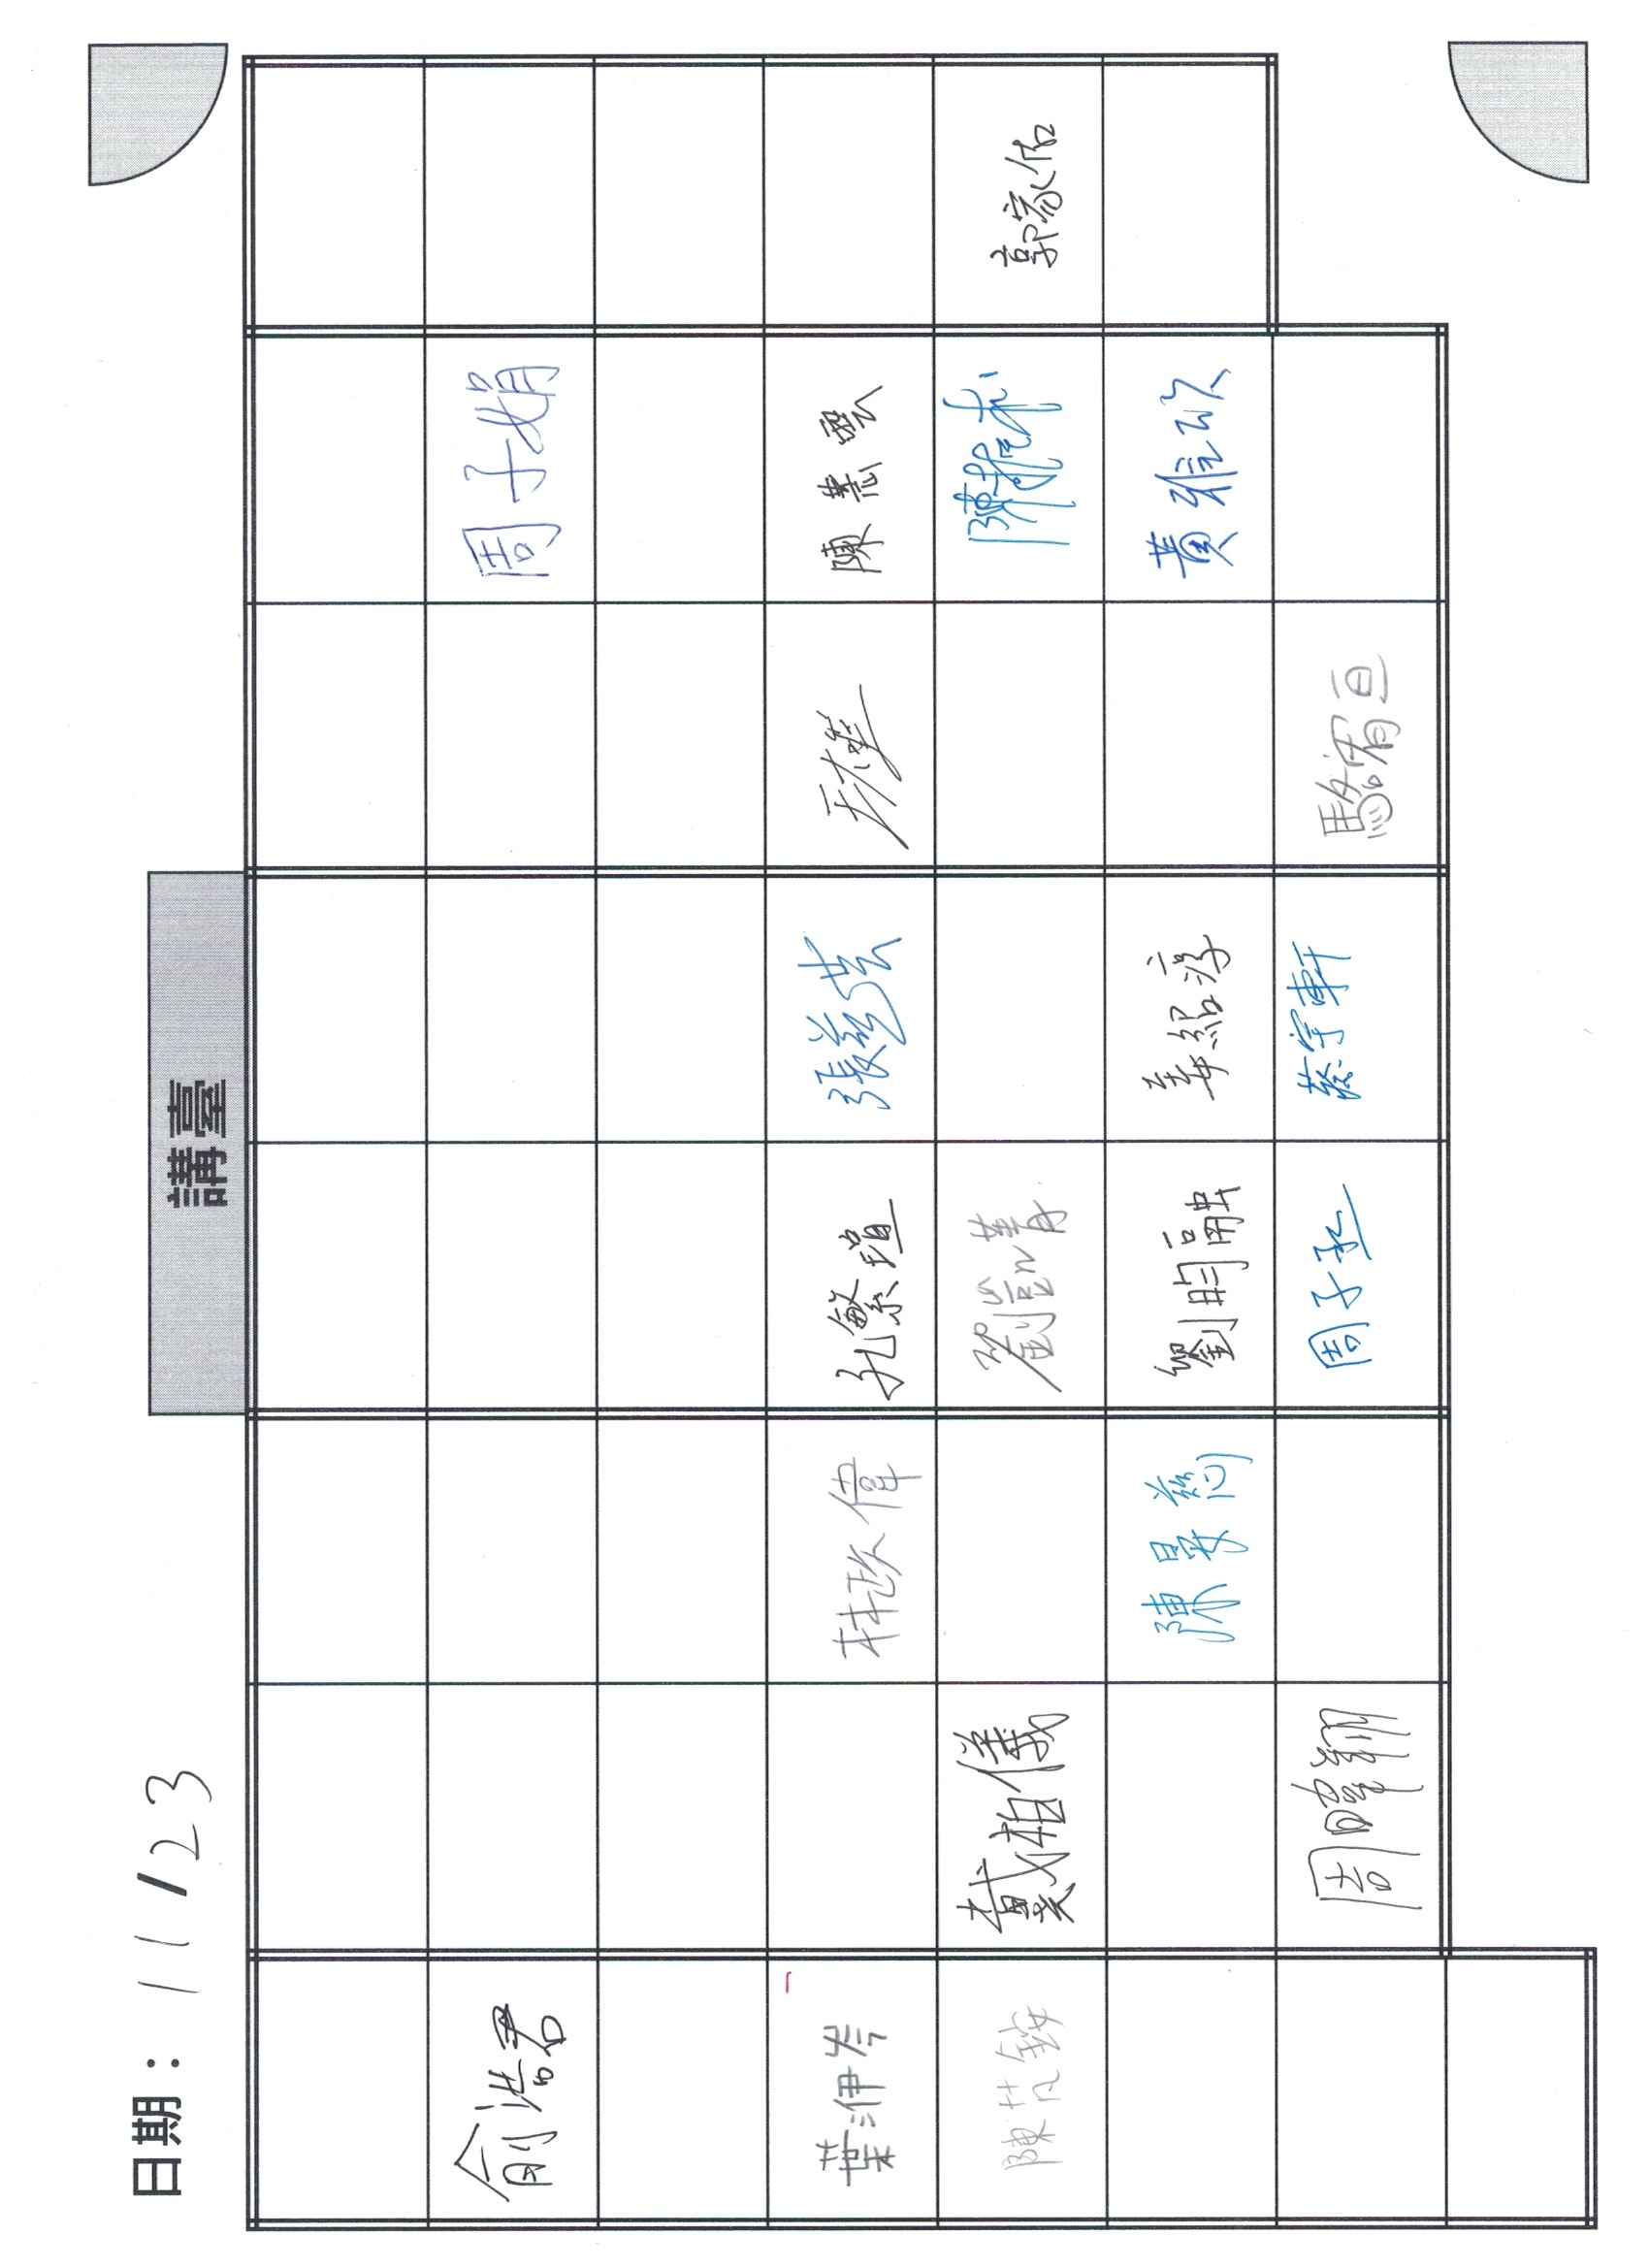 日期：11/23
講臺
俞浩君 周子娟
葉洢岑 林政偉 孔繁瑄 張慈芸 陳惠雲
陳芃銨 戴柏儀 劉凱菁 郭家佑
陳旻慈 劉昀融 姜紹淳 黃雅欣
周暐翔 周子丞 蔡宇軒 駱宥亘